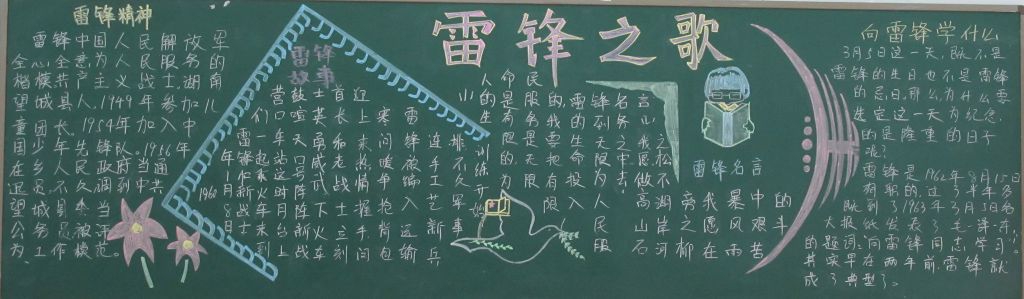 雷锋精神
雷锋中国人民解放军
全心全意为人民服务的
楷模共产主义战士湖南
望城县人。1949年参加儿
童团长。1954年加入中
国少年先锋队。1956年
在乡人民政府当通
迅员,不久调到中共
望城县委当
公务员被评
为工作模范。
雷锋
故事
1960年1月8日
雷锋和新战士
们一起乘火车来到
营口车站这时月台上
鼓喧天号阵阵新战
士英勇威武下火车
首长和走战士立刻
迎上来热情握手问
寒问暖抢背包
雷锋被编入运输
连手工艺新兵
排不久军事
训练开始
雷锋之歌
人的生
命是有限的为
民服务是无限
的,我要把有限
的生命投入
到无限的为人民服
务之中去
雷锋名言
我愿做高山
岩石之松
不做湖岸
河旁之柳
我愿在
暴风雨
中艰苦
的斗
向雷锋学什么
3月5日这一天,既不是
雷锋的生日也不是雷锋
的忌日,那么,为什么要
选定这一天为纪念
的是隆重的日子
呢?
雷锋是1962年8月15日
殉职的,过了半年多
到了1963年3月5日各
大报纸发表了毛泽东
的题词:“向雷锋同志学习”。
其实早在两年前雷锋就
成了典型了。